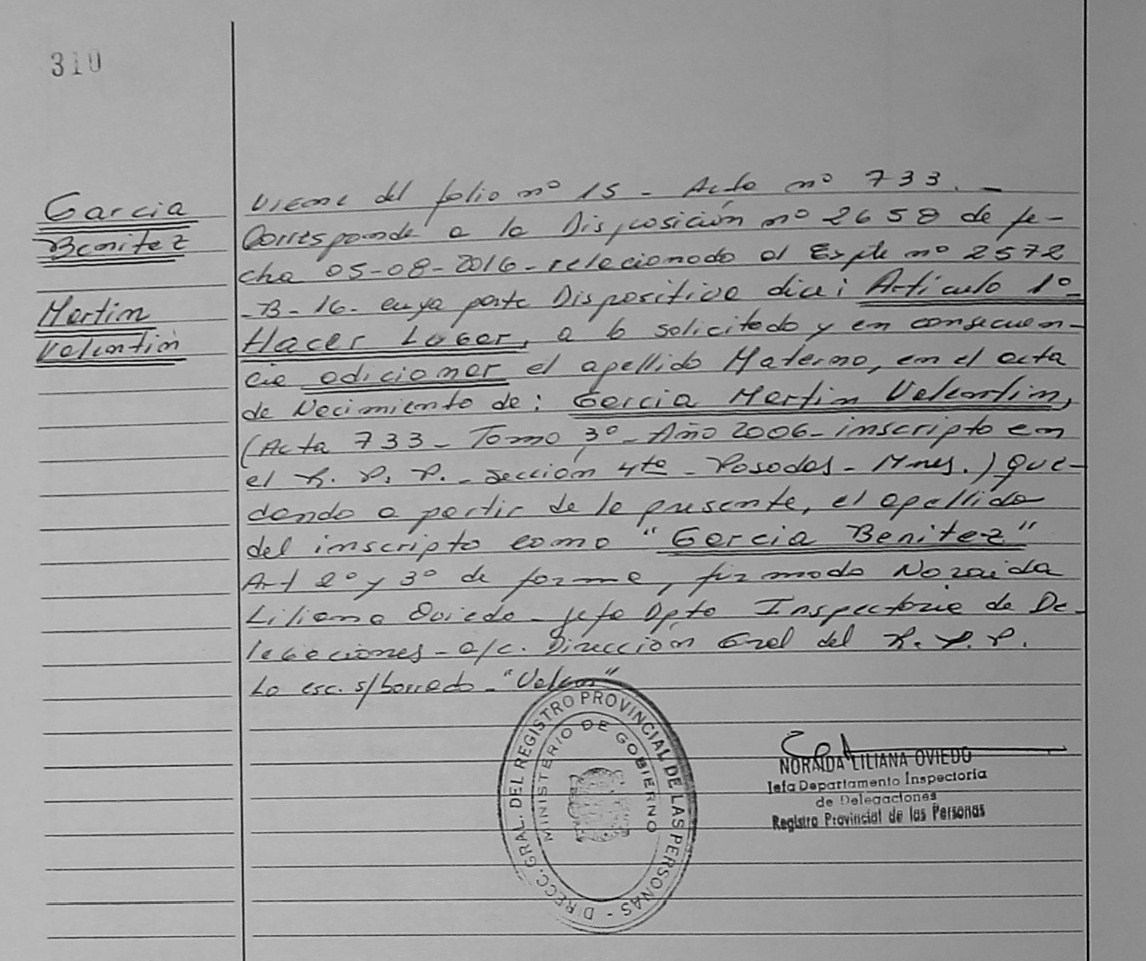 310
Garcia
Benitez
Martin
Valentin
Viene del folio nº 15 - Acta nº 733. -
Corresponde a la Disposición nº 2658 de fe-
cha 05-08-2016- relacionado al Expte nº 2572
-B-16- cuya parte Dispositiva dice: Artículo 1º-
Hacer Lugar, a lo solicitado y en consecuen-
cia adicionar el apellido Materno, en el acta
de Nacimiento de: Garcia Martin Valentin,
(Acta 733- Tomo 3º- Año 2006- inscripto en
el R. P. P. - Sección 4ta - Posadas - Mnes.) que-
dando a partir de la presente, el apellido
del inscripto como "Garcia Benitez"
Art 2º y 3º de forma, firmado Noraida
Liliana Oviedo - Jefa Dpto Inspectoria de De-
legaciones - a/c. Dirección Gral del R. P. P.
Lo esc. s/borrado - "Valen"
DIRECC. GRAL. DEL REGISTRO PROVINCIAL DE LAS PERSONAS -
MINISTERIO DE GOBIERNO
NORAIDA LILIANA OVIEDO
Jefa Departamento Inspectoria
de Delegaciones
Registro Provincial de las Personas